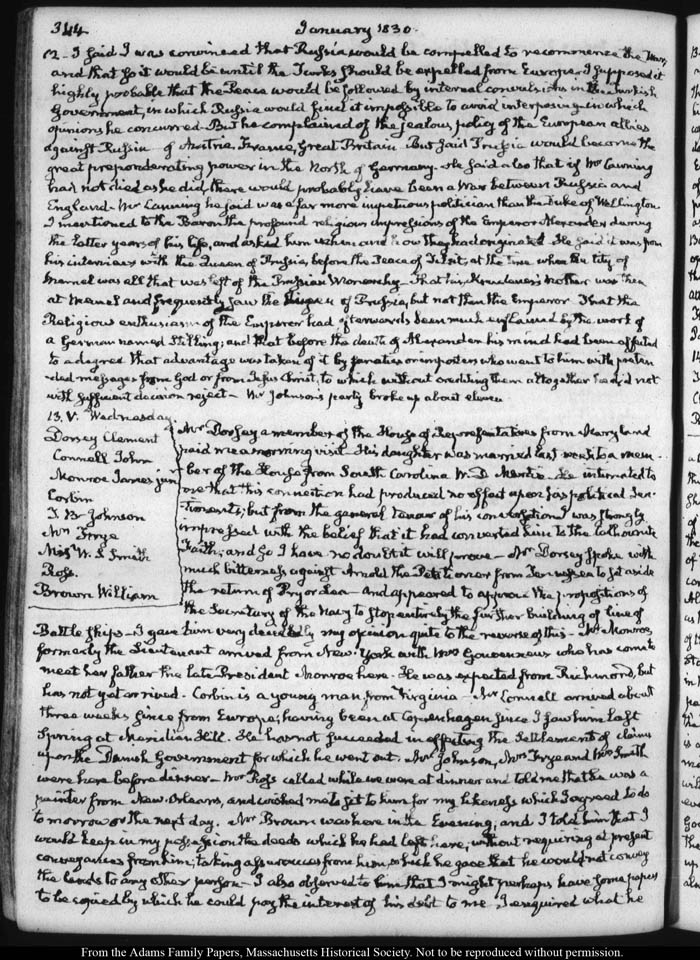 344
January 1830.
12 - I said I was convinced that Russia would be compelled to recommence the War,
and that so it would be until the Turks should be expelled from Europe. I supposed it
highly probable that the Peace would be followed by internal convulsions in the Turkish
Government, in which Russia would find it impossible to avoid interposing in which
opinions he concurred. But he complained of the jealous policy of the European allies
against Russia of Austria, France, Great Britain But said Prussia would become the
great preponderating power in the North of Germany. He said also that if Mr Canning
had not died as he did, there would probably have been a War between Russia and
England. Mr Canning he said was a far more impetuous politician than the Duke of Wellington
I mentioned to the Baron the profound religious impressions of the Emperor Alexander during
the latter years of his life, and asked him when and how they had originated He said it was from
his interviews with the Queen of Prussia, before the Peace of Tilsit, at the time when the city of
Memel was all that was left of the Prussian Monarchy - That his, Krudener's mother was then
at Memel and frequently saw the Queen of Prussia, but not then the Emperor That the
Religious enthusiasm of the Emperor had afterwards been much inflamed by the work of
a German named Stilling; and that before the death of Alexander his mind had been affected
to a degree that advantage was taken of it by fanatics or impostors who went to him with preten
-ded messages from God or from Jesus Christ, to which without crediting them altogether he did not
with sufficient decision reject - Mr Johnson's party broke up about eleven
13. V. Wednesday.
Dorsey Clement
Connell John
Monroe James jun
Corbin
J. B. Johnson
Mrs Frye
Miss W. S. Smith
Ross.
Brown William
Mr Dorsey a member of the House of Representatives from Maryland
paid me a morning visit His daughter was married last week to a mem-
ber of the House from South Carolina W. D. Martin. He intimated to
me that this connection had produced no effect upon his political Sen-
timents; but from the general tenour of his conversation I was strongly
impressed with the belief that it had converted him to the Calhounite
Faith; and so I have no doubt it will prove - Mr Dorsey spoke with
much bitterness against Arnold the Petitioner from Tennessee to set aside
the return of Pryor Lea - and appeared to approve the propositions of
the Secretary of the Navy to stop entirely the further building of line of
Battle ships - I gave him very decidedly my opinion quite to the reverse of this - Mr Monroe,
formerly the Lieutenant arrived from New-York with Mrs Gouverneur who has come to
meet her father the late President Monroe here. He was expected from Richmond, but
has not yet arrived. Corbin is a young man from Virginia - Mr Connell arrived about
three weeks since from Europe; having been at Copenhagen since I saw him last
Spring at Meridian Hill. He has not succeeded in effecting the settlement of claims
upon the Danish Government for which he went out. Mr Johnson, Mrs Frye and Miss Smith
were here before dinner - Mr Ross called while we were at dinner and told me that he was a
painter from New-Orleans, and wished me to sit to him for my likeness which I agreed to do
to morrow or the next day. Mr Brown was here in the Evening; and I told him that I
would keep in my possession the deeds which he had left here, without requiring at present
conveyances from him; taking assurances from him, which he gave that he would not convey
the lands to any other person - I also observed to him that I might perhaps have some papers
to be copied by which he could pay the interest of his debt to me I enquired what he
From the Adams Family Papers, Massachusetts Historical Society. Not to be reproduced without permission.